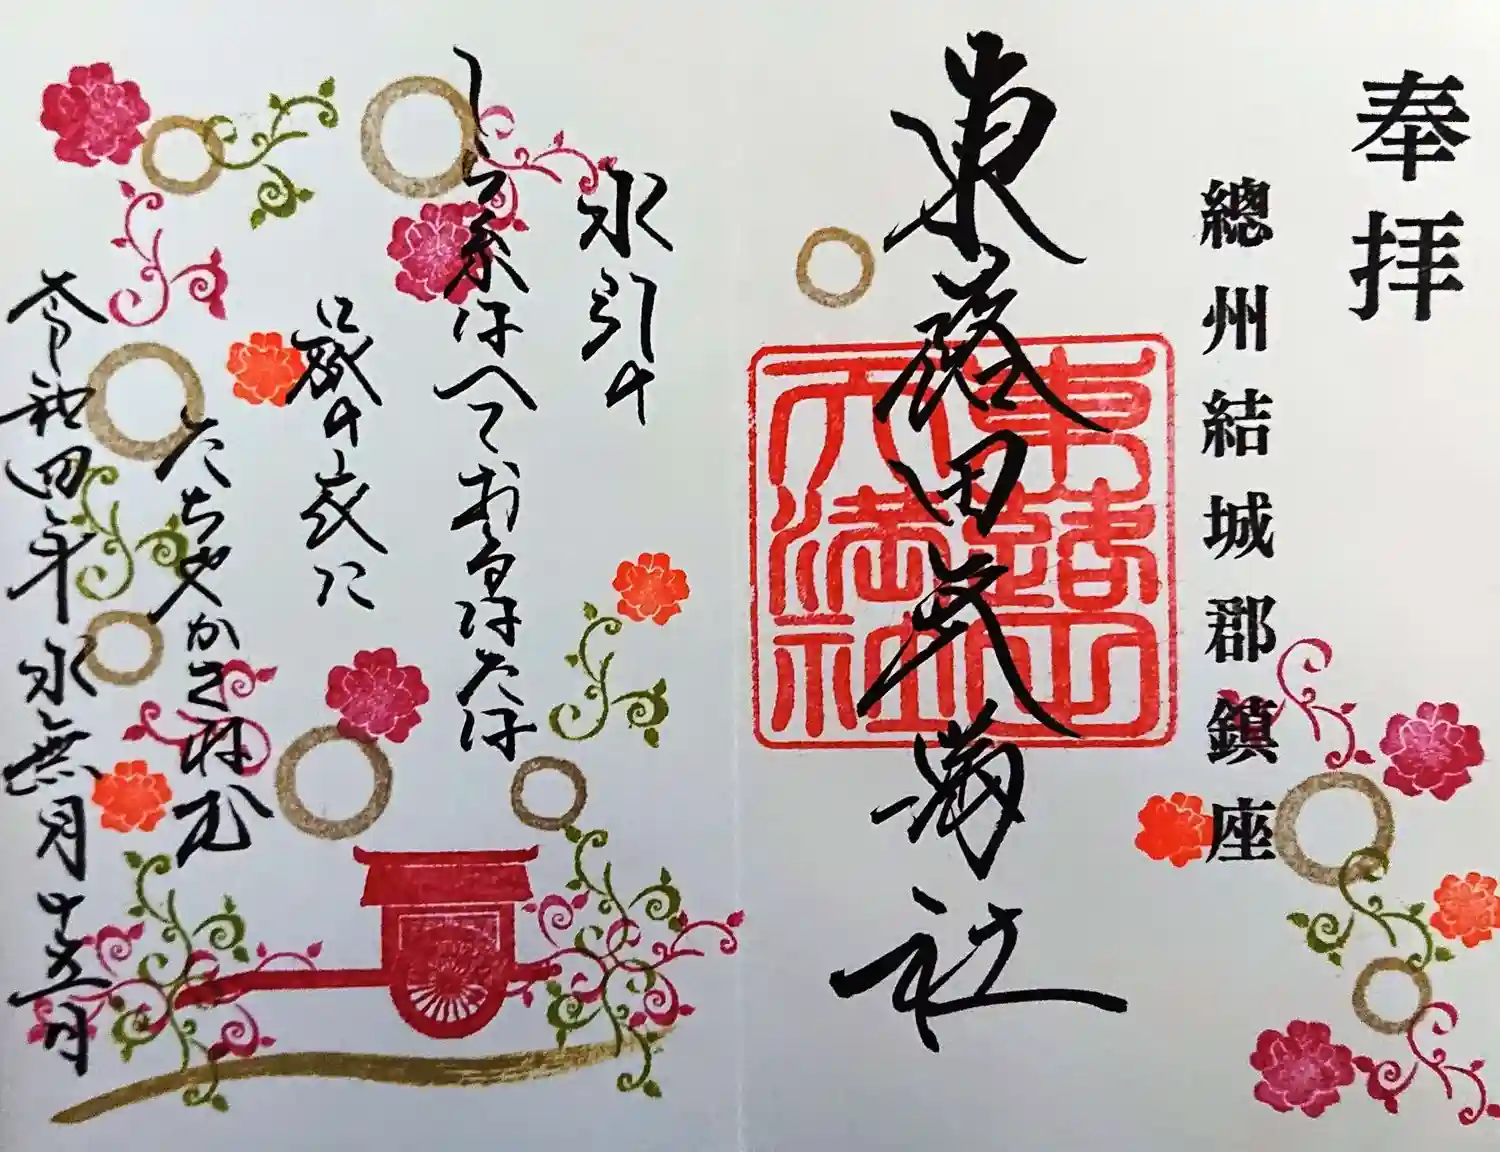 奉拝
總州結城郡鎮座
東蕗田天満社
東蕗田
天満社
水引の
しら糸はへておるはたは
旅の衣に
たちやかさねむ
令和四年水無月十五日